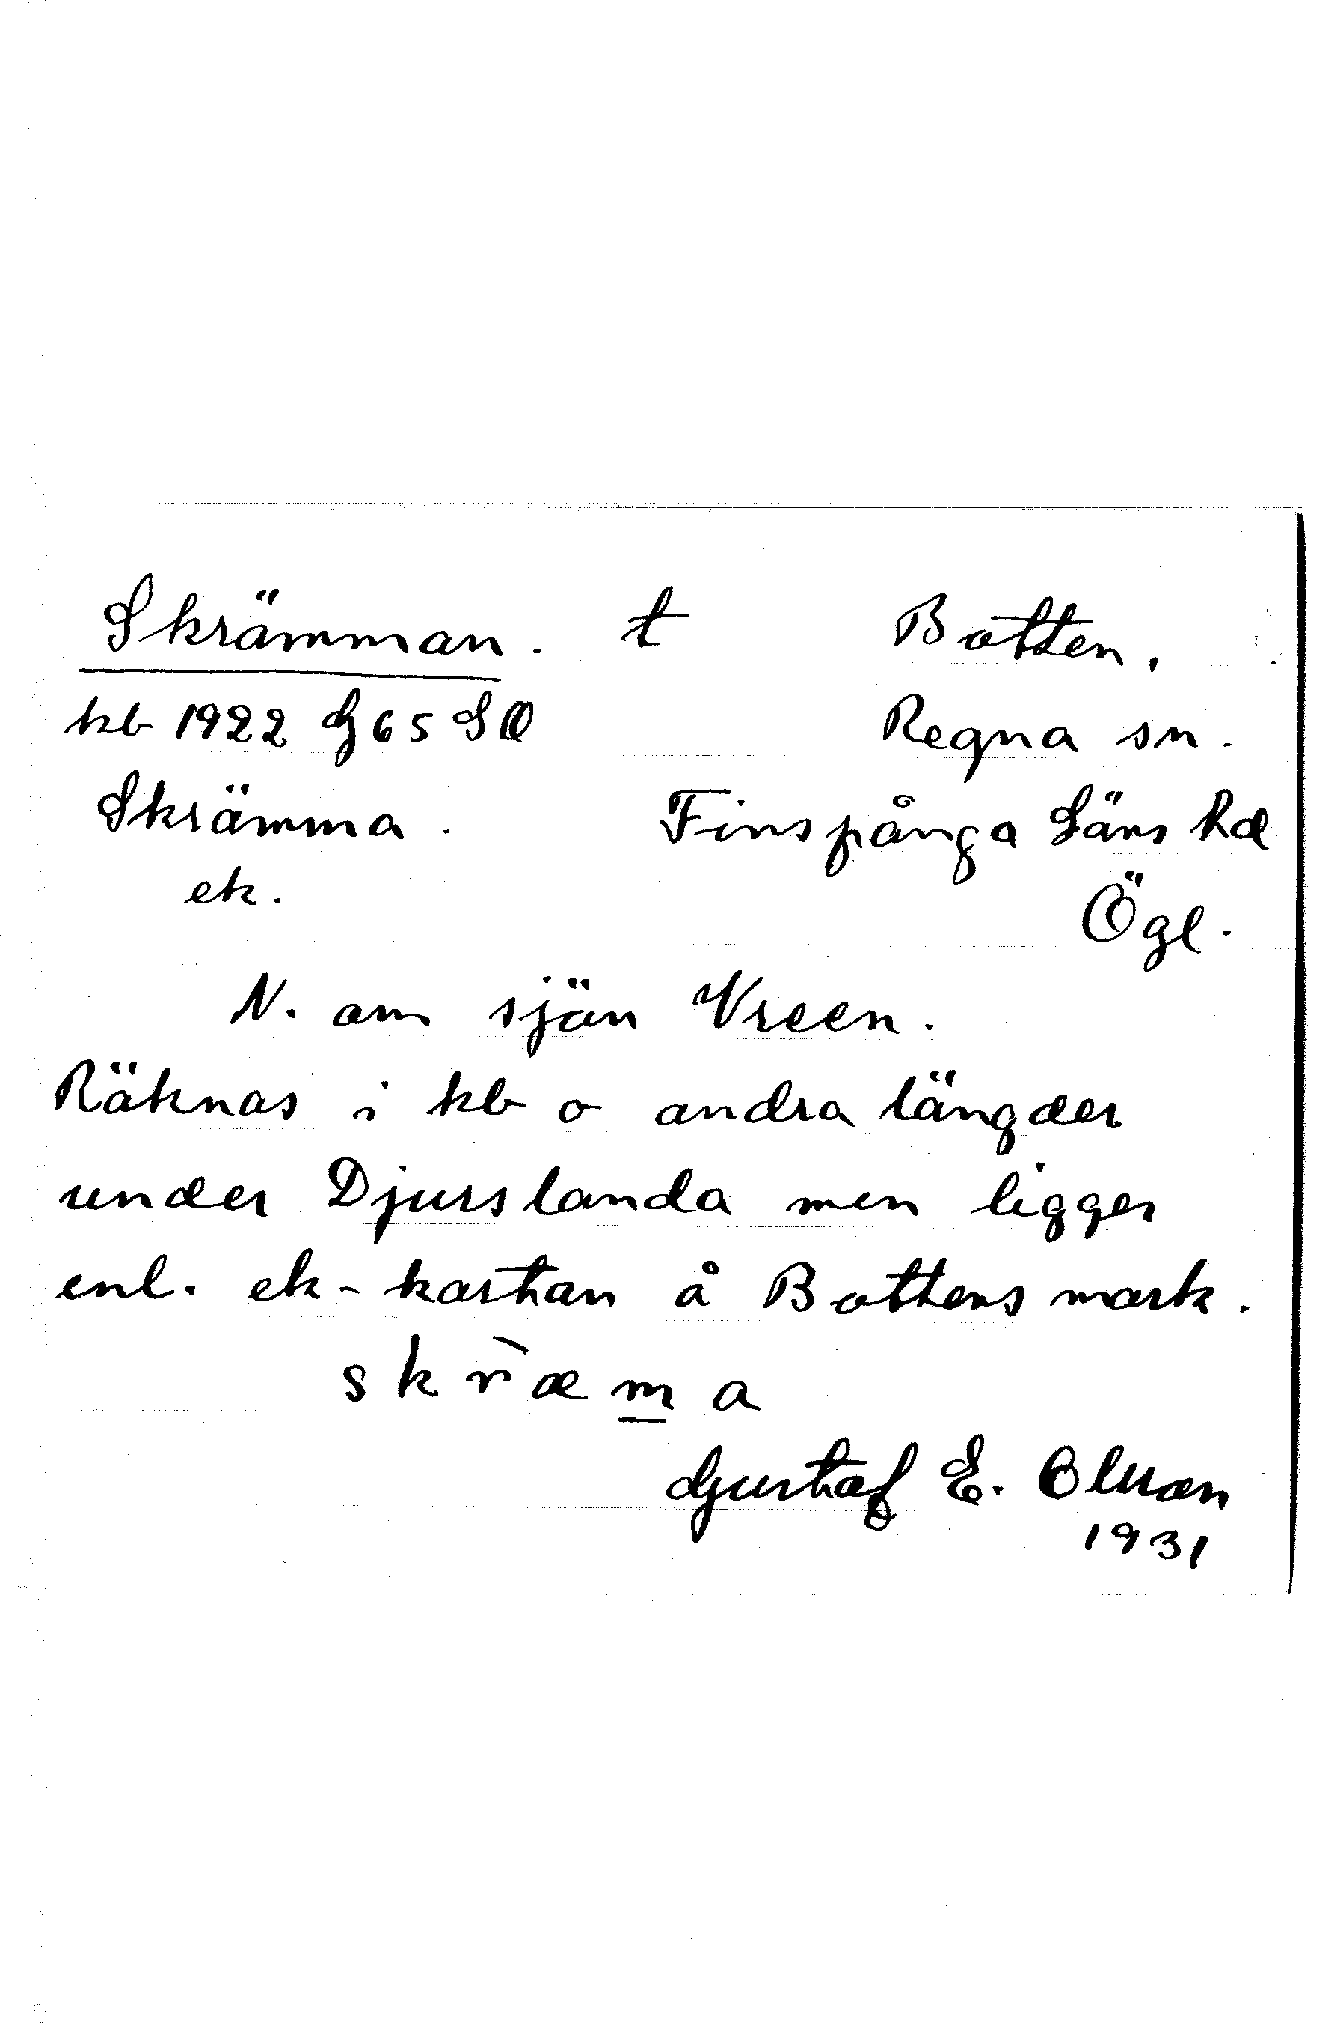 Skrämman. t Botten.
kb 1922 G 65 SO Regna sn.
Skrämma. Finspånga Läns hd
ek. Ögl.
N. om sjön Vreen.
Räknas i kb o andra längder
under Djurslanda men ligger
enl. ek-kartan å Bottens mark.
skr̀æm̲a
Gustaf E. Olsson
1931